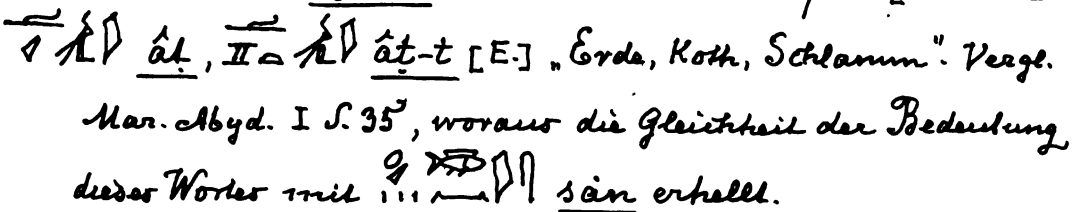 âṭ, âṭ-t [E.] „Erde, Koth, Schlamm“. Vergl.
Mar. Abyd. I S. 35, woraus die Gleichheit der Bedeutung
dieses Wortes mit sȧn erhellt.